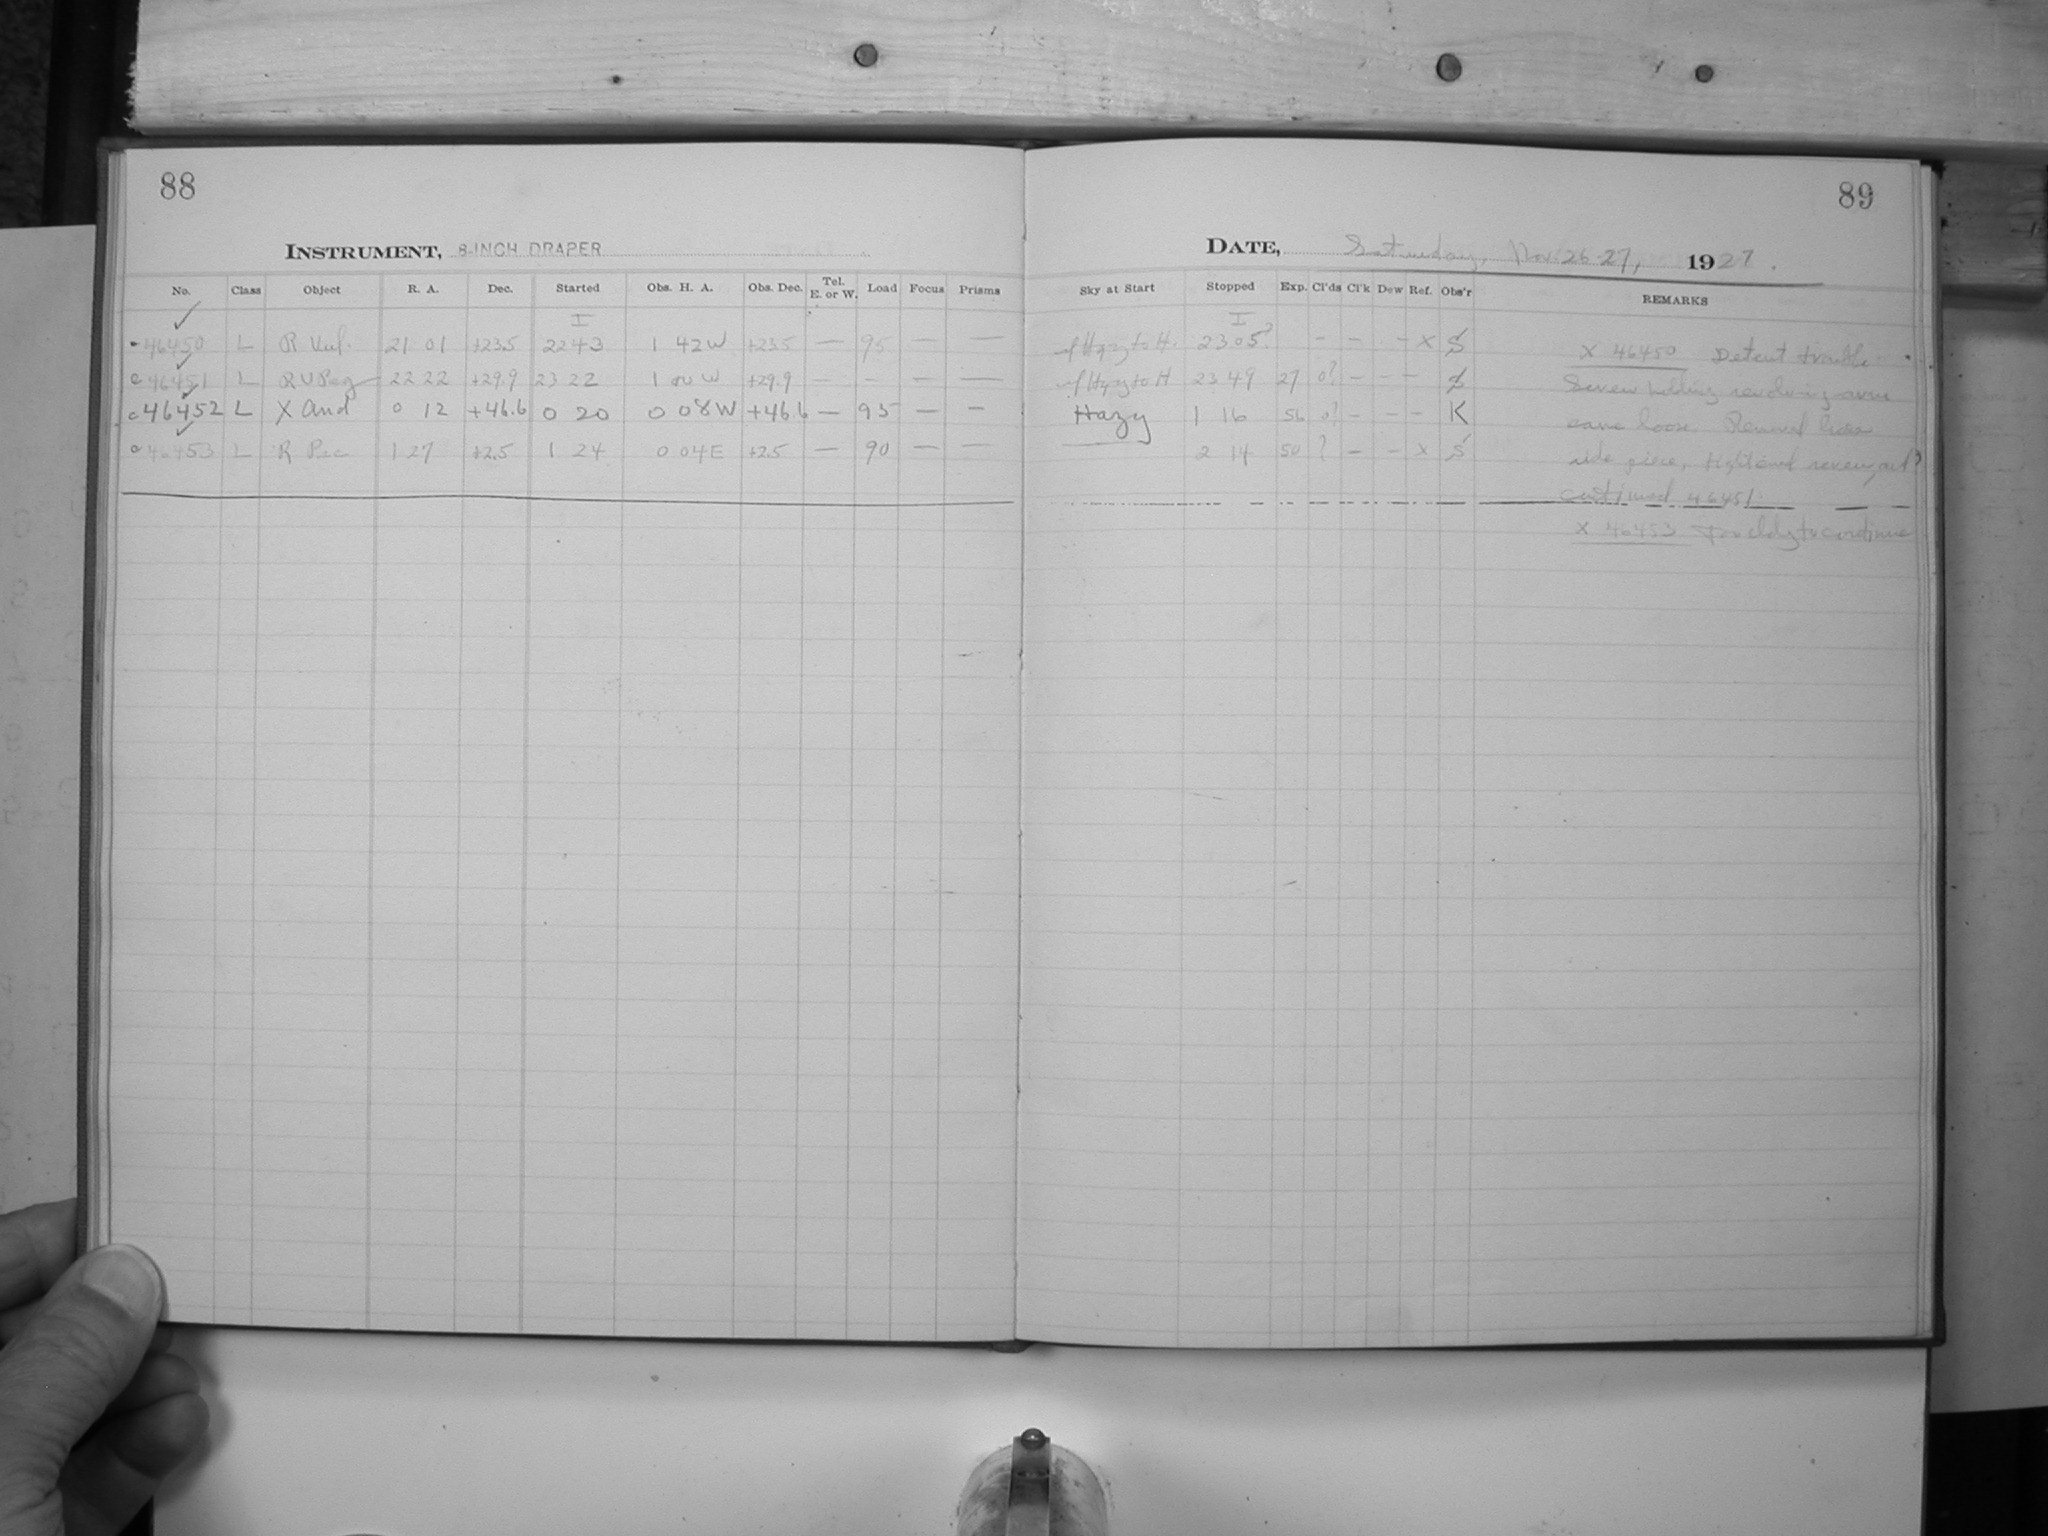 88
INSTRUMENT, 8-INCH DRAPER
No. Class Object R. A. Dec. Started Obs. H. A. Obs. Dec. Tel. E. or W. Load Focus Prisms
I
46450 L R Vul. 21 01 +23.5 22 43 1 42 W +23.5 — 95 — —
46451 L RV Peg 22 22 +29.9 23 22 1 00 W +29.9 — - — —
46452 L X And 0 12 +46.6 0 20 0 08 W +46.6 — 95 — —
46453 L R Psc 1 27 +2.5 1 24 0 04 E +2.5 — 90 — —
89
DATE, Saturday, Nov. 26-27, 1927.
Sky at Start Stopped Exp. Cl'ds Cl'k Dew Ref. Obs'r REMARKS
I
Hazy to H. 23 05? - - - x S
Hazy to H 23 49 27 0? - - - S
Hazy 1 16 56 0? - - - K
2 14 50 ? - - x S
x 46450 Detent trouble.
Screw holding revolving arm
came loose. Removed
side piece, tightened screw, and
continued 46451
x 46453 Too cldy to continue